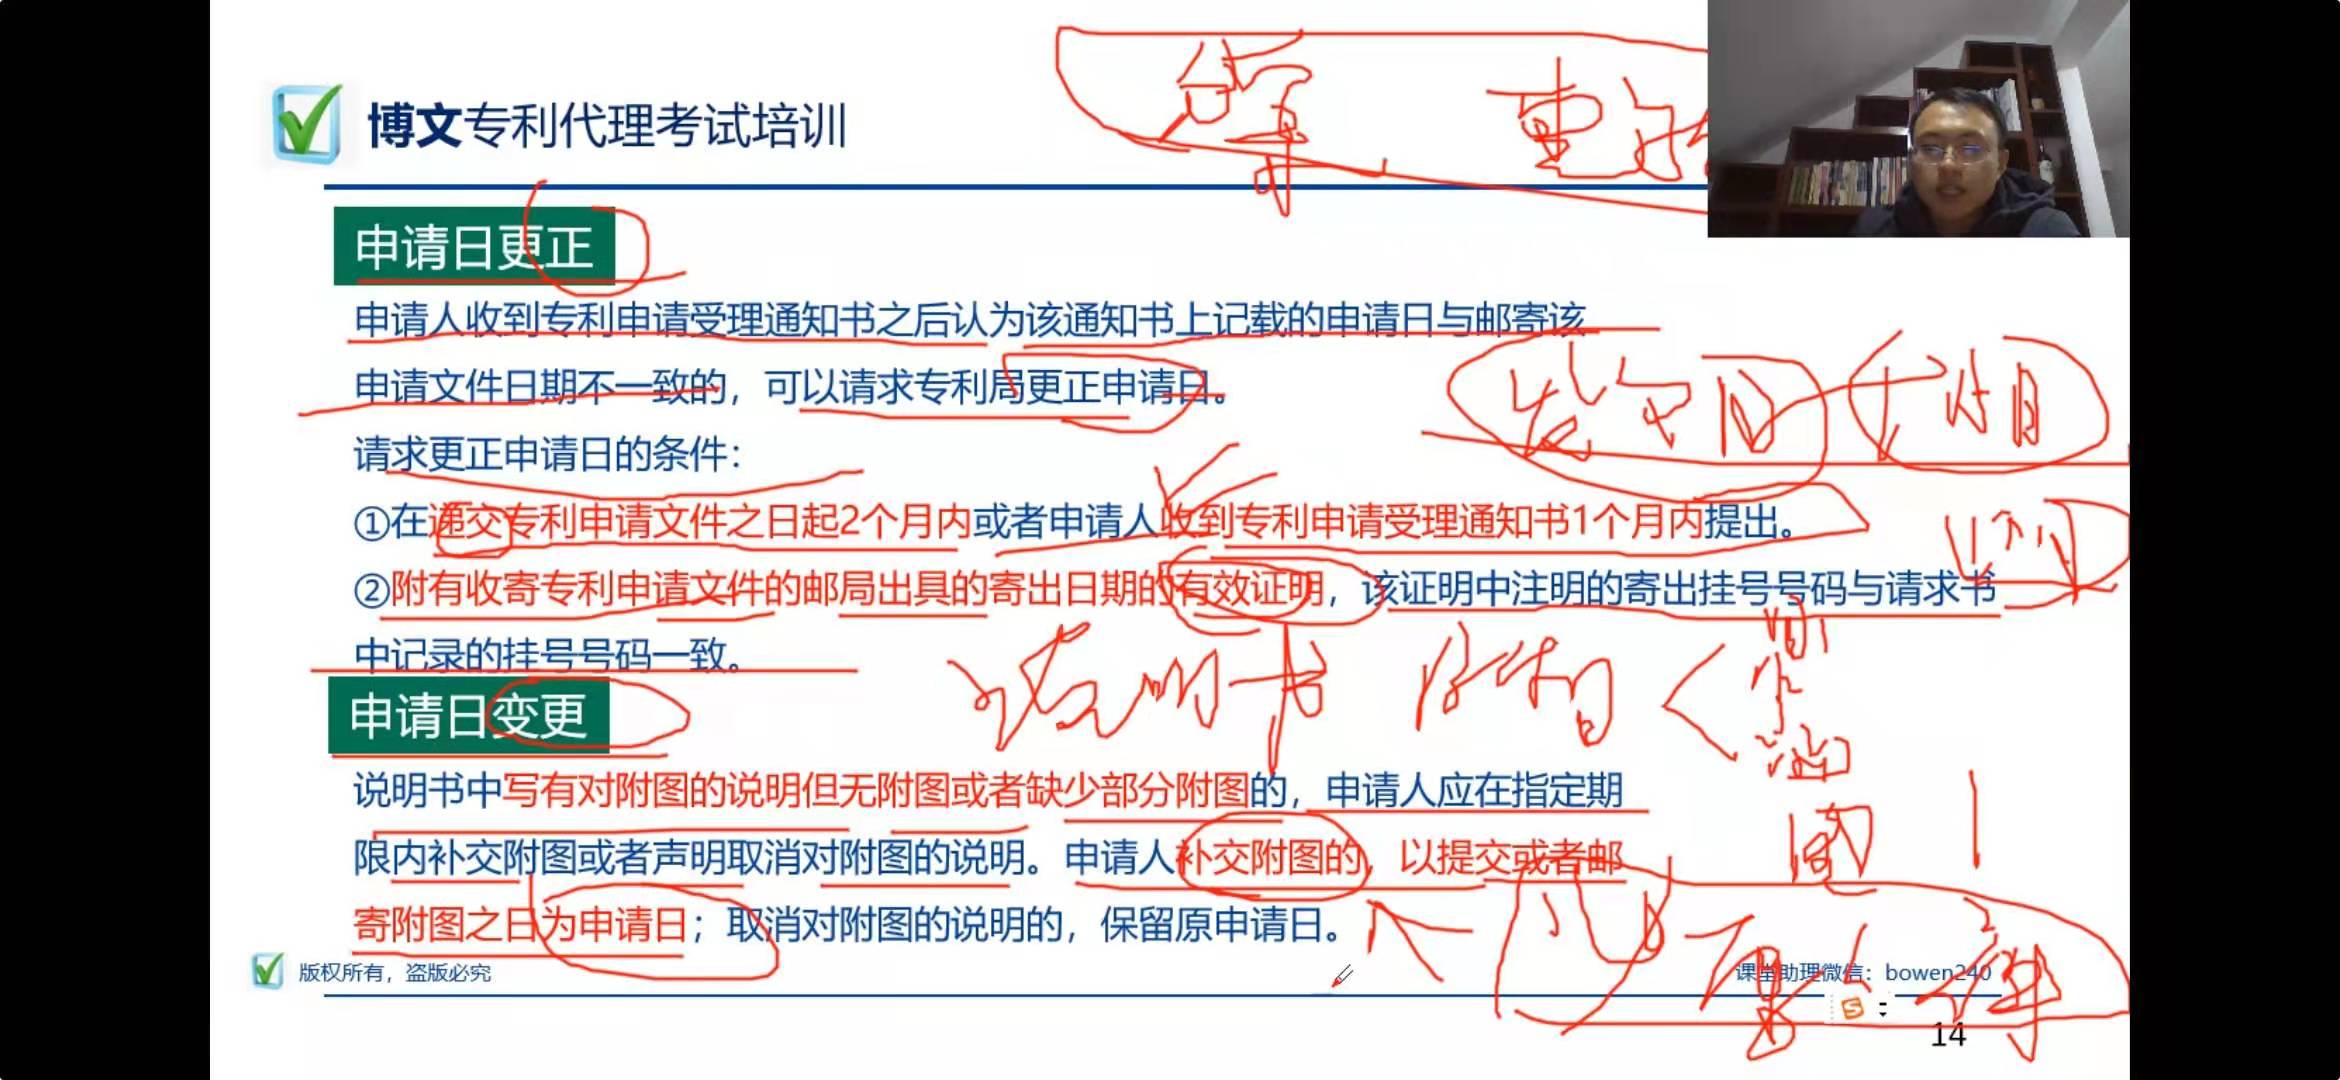 博文专利代理考试培训
申请日更正
申请人收到专利申请受理通知书之后认为该通知书上记载的申请日与邮寄该
申请文件日期不一致的，可以请求专利局更正申请日。
请求更正申请日的条件：
①在递交专利申请文件之日起2个月内或者申请人收到专利申请受理通知书1个月内提出。
②附有收寄专利申请文件的邮局出具的寄出日期的有效证明，该证明中注明的寄出挂号号码与请求书
中记录的挂号号码一致。
说明书
申请日变更
说明书中写有对附图的说明但无附图或者缺少部分附图的，申请人应在指定期
限内补交附图或者声明取消对附图的说明。申请人补交附图的，以提交或者邮
寄附图之日为申请日；取消对附图的说明的，保留原申请日。
版权所有，盗版必究
课堂助理微信：bowen240
14